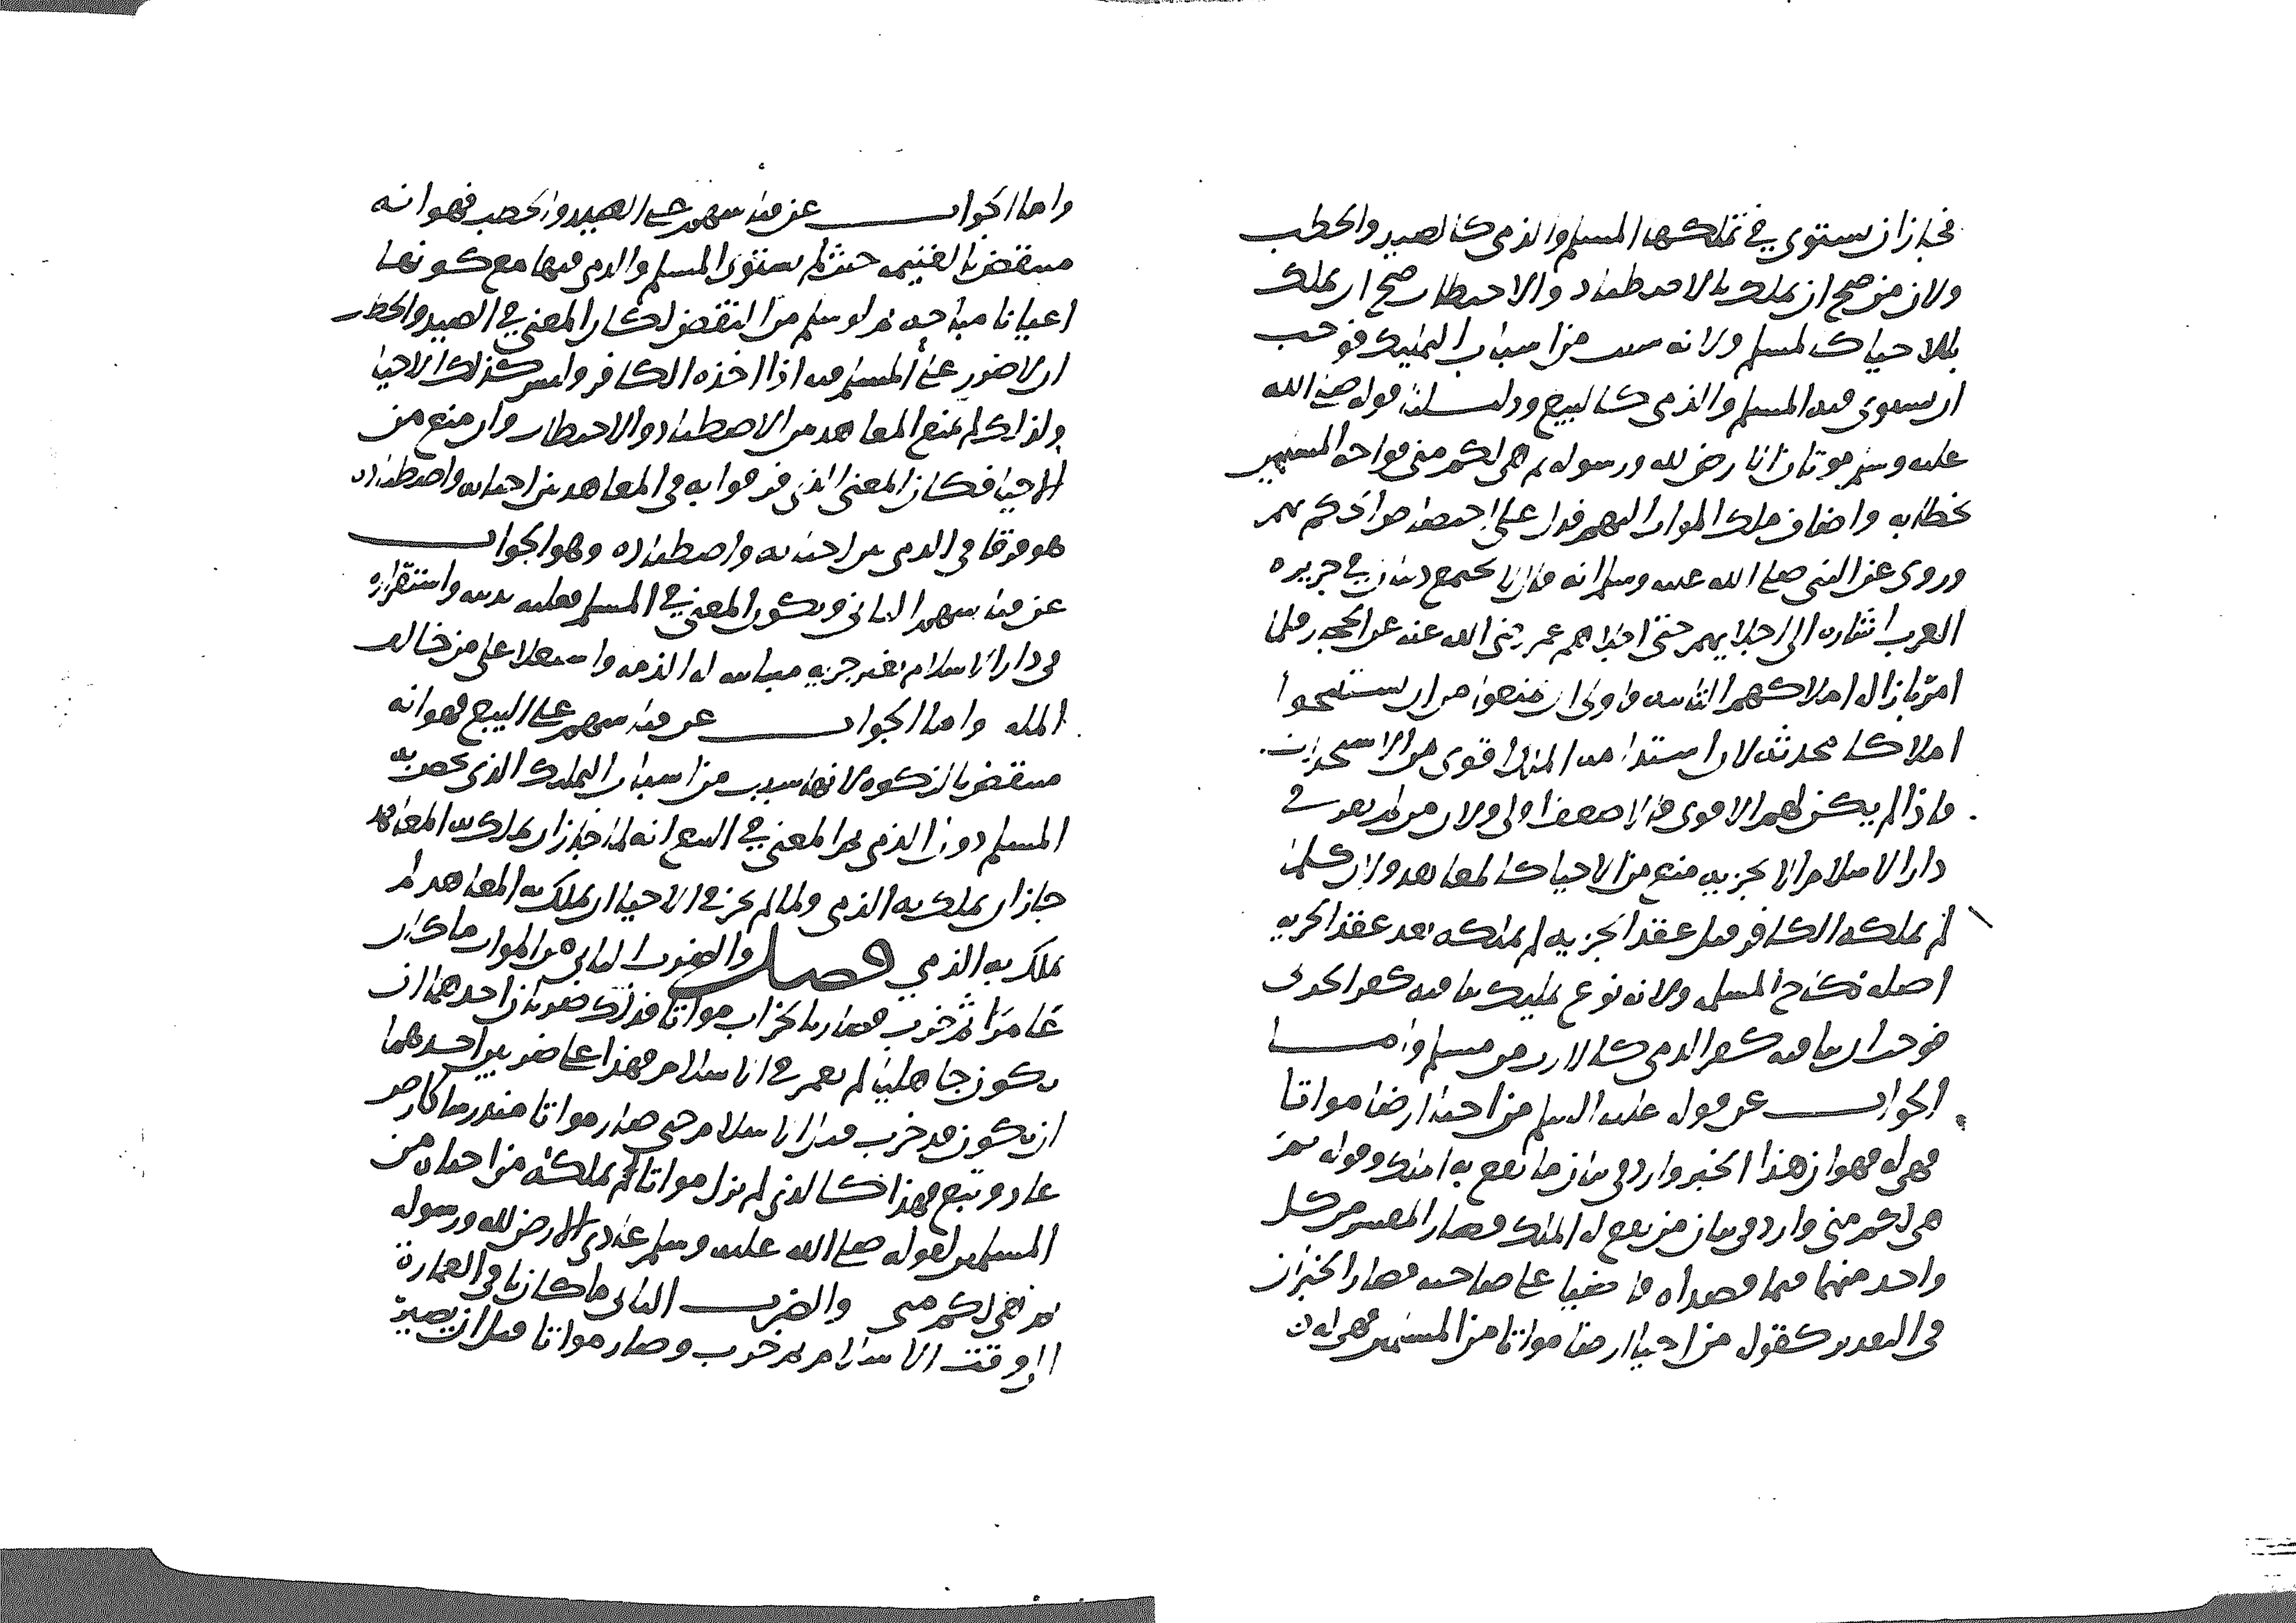 فجاز ان يستوي في تملكها المسلم والذمي كالصيد والحطب
ولان من صح ان يملك بالاصطياد والاحتطاب صح ان يملك
بالاحيا كالمسلم ولانه سبب من اسباب التمليك فوجب
ان يستوي فيه المسلم والذمي كالبيع ودليلنا قوله صلى الله
عليه وسلم موتان الارض لله ورسوله ثم هي لكم مني فواجه المسلمين
بخطابه واضاف ملك الموات اليهم فدل على اختصاصهم
وروي عن النبي صلى الله عليه وسلم انه قال لا يجتمع دينان في جزيره
العرب اشاره الى اجلايهم حتى اجلاهم عمر رضي الله عنه عن الحجاز فلما
امر بازاله املاكهم الثابته فاولى ان يمنعوا من ان يستبيحوا
املاكا محدثه لان استدامه الملك اقوى من الاستحداث
فاذا لم يكن لهم الاقوى فالاضعف اولى ولان من لم يقر في
دار الاسلام الا بجزيه منع من الاحيا كالمعاهد ولان كلما
لم يملكه الكافر قبل عقد الجزيه لم يملكه بعد عقد الجزيه
اصله نكاح المسلمه ولانه نوع تمليك ينافيه كفر الحربي
فوجب ان ينافيه كفر الذمي كالارث من مسلم واما
الجواب عن قوله عليه السلم من احيا ارضا مواتا
فهي له فهو ان هذا الخبر وارد في بيان ما يقع به الملك وقوله ثم
هي لكم مني وارد في بيان من يقع له الملك فصار المفسر من كل
واحد منهما فيما قصد له قاضيا على صاحبه فصار الخبران
في التقدير كقوله من احيا ارضا مواتا من المسلمين فهي له
واما الجواب عن قياسهم على الصيد والحطب فهو انه
منتقض بالغنيمه حيث لم يستوي المسلم والذمي فيها مع كونها
اعيانا مباحه ثم لو سلم من النقض لكان المعنى في الصيد والحطب
ان لا ضرر على المسلم فيه اذا اخذه الكافر وليس كذلك الاحيا
ولذلك لم يمنع المعاهد من الاصطياد والاحتطاب وان منع من
الاحيا فكان المعنى الذي فرقوا به في المعاهد بين احيايه واصطياده
هو فرقنا في الذمي بين احيايه واصطياده وهو الجواب
عن قياسهم الثاني ويكون المعنى في المسلم فضيله بدينه واستقراره
في دار الاسلام بغير جزيه مباينه لاهل الذمه واستعلا على من خالف
المله واما الجواب عن قياسهم على البيع فهو انه
منتقض بالزكوه لانها سبب من اسباب التملك الذي يختص به
المسلم دون الذمي ثم المعنى في البيع انه لما جاز ان يملك به المعاهد
جاز ان يملك به الذمي ولما لم يجز في الاحيا ان يملك به المعاهد لم
يملك به الذمي فصل والضرب الثاني من الموات ما كان
عامرا ثم خرب فصار بالخراب مواتا فذلك ضربان احدهما ان
يكون جاهليا لم يعمر في الاسلام فهذا على ضربين احدهما
ان يكون قد خرب قبل الاسلام حتى صار مواتا مندرسا كارض
عاد وتبع فهذا كالذي لم يزل مواتا يملكه من احياه من
المسلمين لقوله صلى الله عليه وسلم عادي الارض لله ورسوله
ثم هي لكم مني والضرب الثاني ما كان باقي العمارة
الى وقت الاسلام ثم خرب وصار مواتا قبل ان يصير